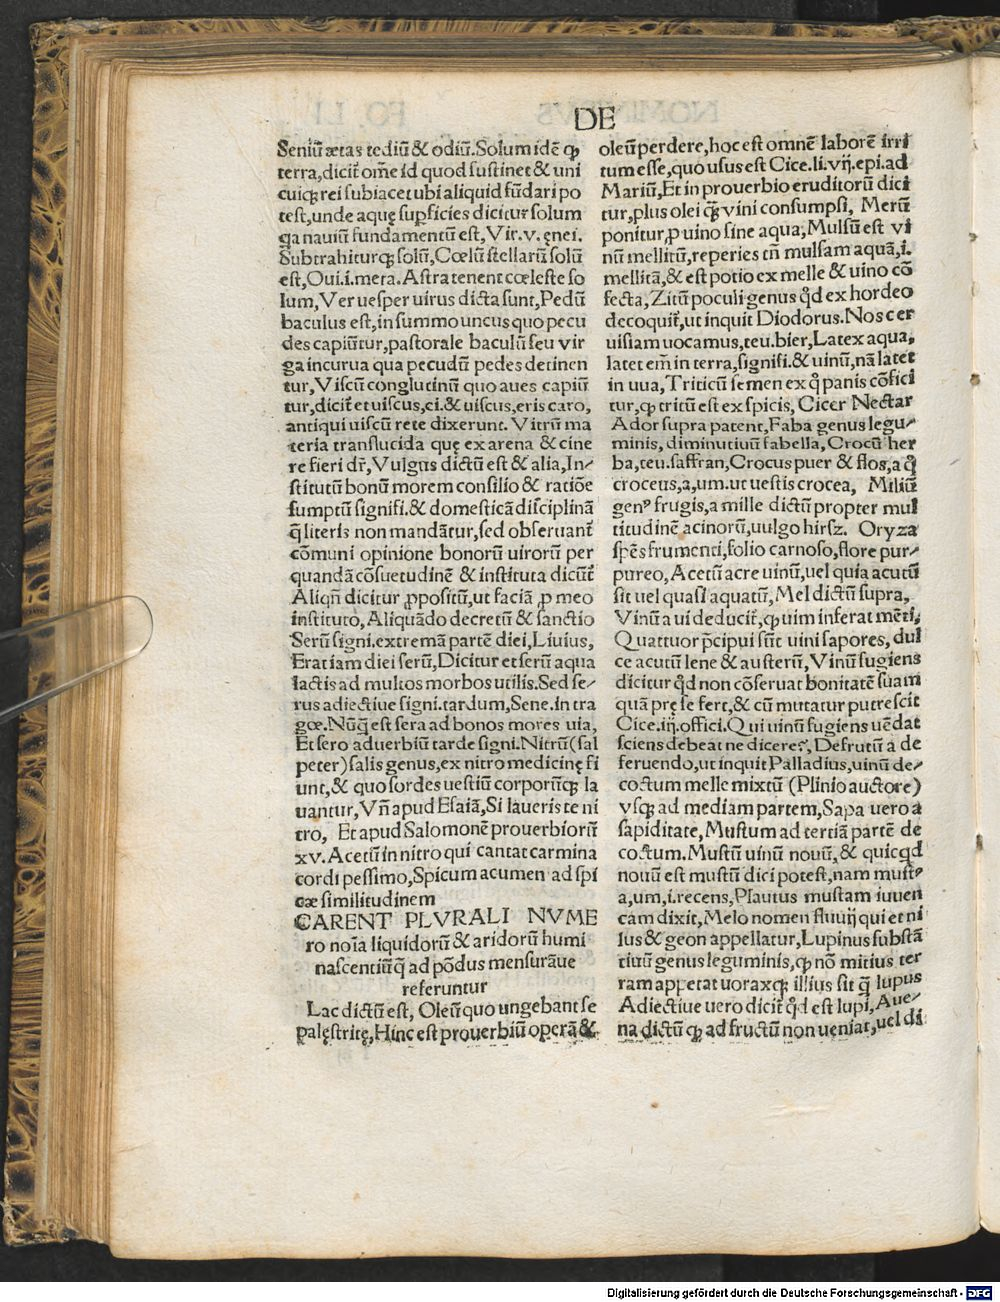 DE
Seniũ ætas tediũ & odiũ. Solum idẽ ꝙ
terra, dicit̃ om̃e id quod sustinet & uni
cuiqꝫ rei subiacet ubi aliquid fũdari po
test, unde aquę supficies dicitur solum
ꝗa nauiũ fundamentũ est, Vir. v. ęnei.
Subtrahiturqꝫ solũ, Cœlũ stellarũ solũ
est, Oui. i. meta. Astra tenent cœleste so
lum, Ver uesper uirus dicta sunt, Pedũ
baculus est, in summo uncus quo pecu
des capiũtur, pastorale baculũ seu vir
ga incurua qua pecudũ pedes detinen
tur, Viscũ conglutinũ quo aues capiũ
tur, dicit̃ et uiscus, ci. & uiscus, eris caro,
antiqui uiscũ rete dixerunt. Vitrũ ma
teria translucida quę ex arena & cine
re fieri dr̃, Vulgus dictũ est & alia, In⸗
stitutũ bonũ morem consilio & ratiõe
sumptũ signifi. & domesticã disciplinã
q̃ literis non mandãtur, sed obseruant̃
cõmuni opinione bonorũ uirorũ per
quandã cõsuetudinẽ & instituta dicũt̃
Aliqñ dicitur ꝓpositũ, ut faciã ꝓ meo
instituto, Aliquãdo decretũ & sanctio
Serũ signi. extremã partẽ diei, Liuius,
Erat iam diei serũ, Dicitur et serũ aqua
lactis ad multos morbos utilis. Sed se⸗
rus adiectiue signi. tardum, Sene. in tra
gœ. Nũꝗ̃ est sera ad bonos mores uia,
Et sero aduerbiũ tarde signi. Nitrũ (sal
peter) salis genus, ex nitro medicinę fi
unt, & quo sordes uestiũ corporũqꝫ la
uantur, Vñ apud Esaiã, Si laueris te ni
tro, Et apud Salomonẽ prouerbiorũ
xv. Acetũ in nitro qui cantat carmina
cordi pessimo, Spicum acumen ad spi
cæ similitudinem
CARENT PLVRALI NVME
ro noĩa liquidorũ & aridorũ humi
nascentiũq̃ ad põdus mensurãue
referuntur
Lac dictũ est, Oleũ quo ungebant se
palęstritę, Hinc est prouerbiũ operã &
oleũ perdere, hoc est omnẽ laborẽ irri
tum esse, quo usus est Cice. li. vij. epi. ad
Mariũ, Et in prouerbio eruditorũ dici
tur, plus olei ꝗ̃ vini consumpsi, Merũ
ponitur, ꝓ uino sine aqua, Mulsũ est vi
nũ mellitũ, reperies tñ mulsam aquã, i.
mellitã, & est potio ex melle & uino cõ
fecta, Zitũ poculi genus qd̃ ex hordeo
decoquit̃, ut inquit Diodorus. Nos cer
uisiam uocamus, teu. bier, Latex aqua,
latet em̃ in terra, signifi. & uinũ, nã latet
in uua, Triticũ semen ex q̊ panis cõfici
tur, ꝙ tritũ est ex spicis, Cicer Nectar
Ador supra patent, Faba genus legu⸗
minis, diminutiuũ fabella, Crocũ her
ba, teu. saffran, Crocus puer & flos, a q̊
croceus, a, um. ut uestis crocea, Miliũ
genꝰ frugis, a mille dictũ propter mul
titudinẽ acinorũ, uulgo hirsz. Oryza
spẽs frumenti, folio carnoso, flore pur⸗
pureo, Acetũ acre uinũ, uel quia acutũ
sit uel quasi aquatũ, Mel dictũ supra,
Vinũ a ui deducit̃, ꝙ uim inferat mẽti,
Quattuor p̃cipui sũt uini sapores, dul
ce acutũ lene & austerũ, Vinũ fugiens
dicitur qd̃ non cõseruat bonitatẽ suam
quã pre se fert, & cũ mutatur putrescit
Cice. iij. offici. Qui uinũ fugiens uẽdat
sciens debeat ne dicere?, Defrutũ a de
feruendo, ut inquit Palladius, uinũ de⸗
coctum melle mixtũ (Plinio auctore)
vsqꝫ ad mediam partem, Sapa uero a
sapiditate, Mustum ad tertiã partẽ de
coctum. Mustũ uinũ nouũ, & quicqd
nouũ est mustũ dici potest, nam mustꝰ
a, um, i. recens, Plautus mustam iuuen
cam dixit, Melo nomen fluuij qui et ni
lus & geon appellatur, Lupinus substã
tiuũ genus leguminis, ꝙ nõ mitius ter
ram appetat uoraxqꝫ illius sit q̃ lupus
Adiectiue uero dicit̃ qd̃ est lupi, Aue⸗
na dictũ ꝙ ad fructũ non ueniat, uel di
Digitalisierung gefördert durch die Deutsche Forschungsgemeinschaft - DFG